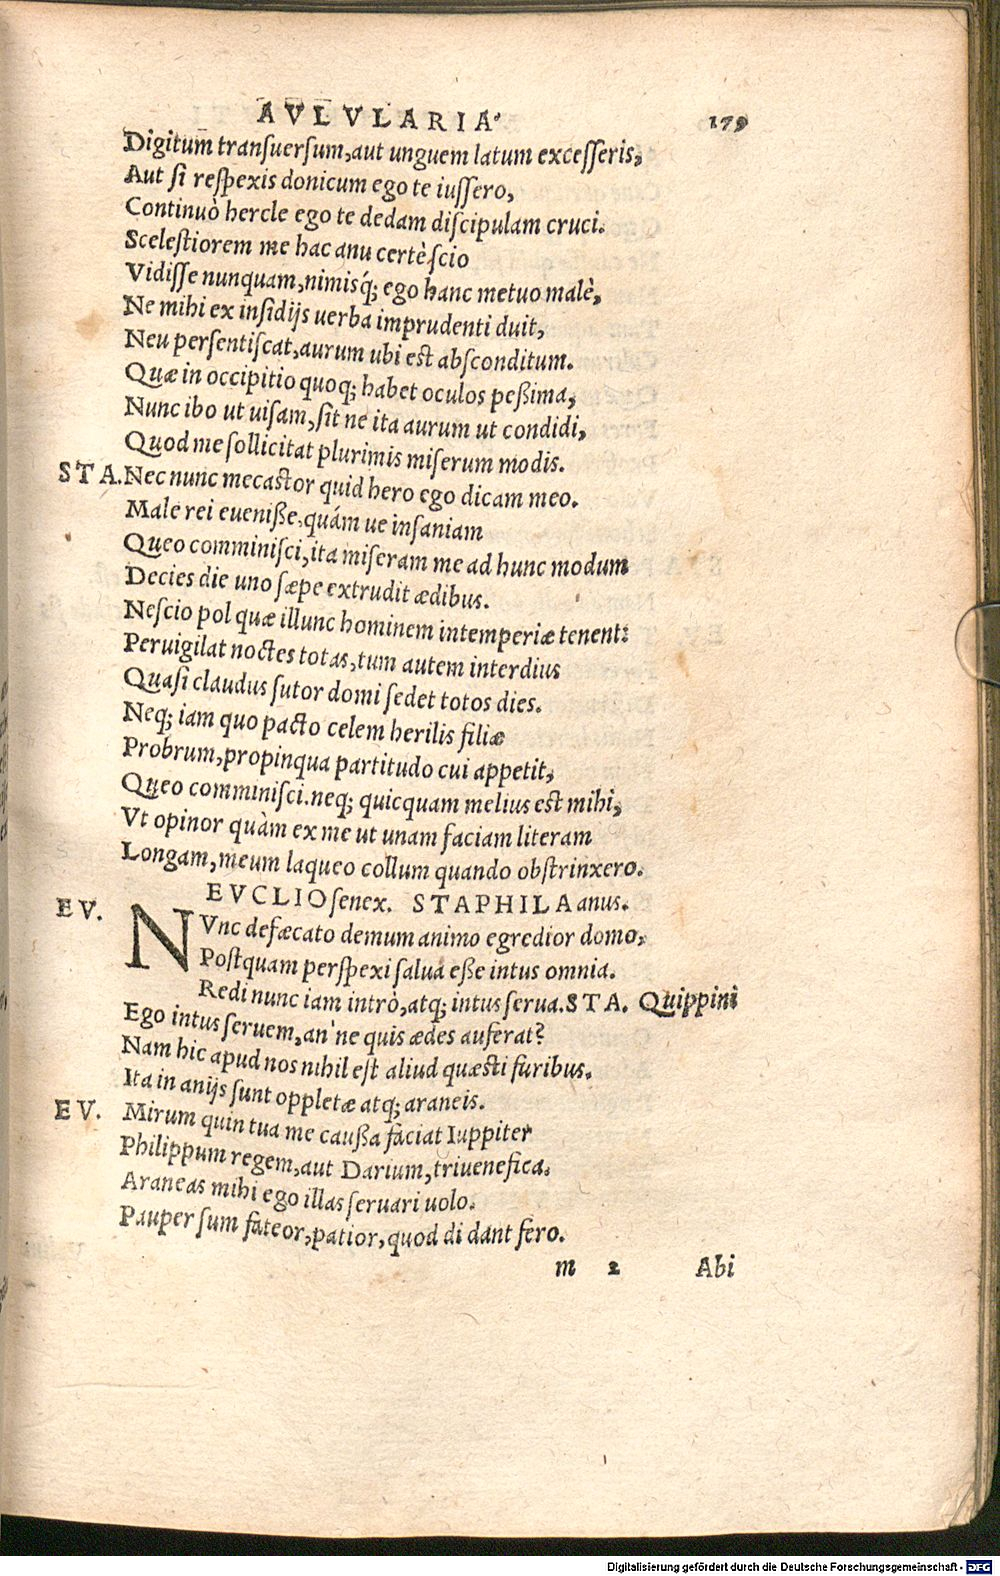 AVLVLARIA. 179
Digitum transuersum, aut unguem latum excesseris,
Aut si respexis donicum ego te iussero,
Continuò hercle ego te dedam discipulam cruci.
Scelestiorem me hac anu certè scio
Vidisse nunquam, nimisq́; ego hanc metuo malè,
Ne mihi ex insidijs uerba imprudenti duit,
Neu persentiscat, aurum ubi est absconditum.
Quæ in occipitio quoq; habet oculos peßima,
Nunc ibo ut uisam, sit ne ita aurum ut condidi,
Quod me sollicitat plurimis miserum modis.
STA. Nec nunc mecastor quid hero ego dicam meo.
Male rei eueniße, quám ue insaniam
Queo comminisci, ita miseram me ad hunc modum
Decies die uno sæpe extrudit ædibus.
Nescio pol quæ illunc hominem intemperiæ tenent:
Peruigilat noctes totas, tum autem interdius
Quasi claudus sutor domi sedet totos dies.
Neq; iam quo pacto celem herilis filiæ
Probrum, propinqua partitudo cui appetit,
Queo comminisci. neq; quicquam melius est mihi,
Vt opinor quàm ex me ut unam faciam literam
Longam, meum laqueo collum quando obstrinxero.
EVCLIO senex. STAPHILA anus.
EV. NVnc defæcato demum animo egredior domo,
Postquam perspexi salua eße intus omnia.
Redi nunc iam intrò, atq; intus serua. STA. Quippini
Ego intus seruem, an'ne quis ædes auferat?
Nam hic apud nos nihil est aliud quæsti furibus.
Ita in anijs sunt oppletæ atq; araneis.
EV. Mirum quin tua me caußa faciat Iuppiter
Philippum regem, aut Darium, triuenefica.
Araneas mihi ego illas seruari uolo.
Pauper sum fateor, patior, quod di dant fero.
m 2 Abi
Digitalisierung gefördert durch die Deutsche Forschungsgemeinschaft - DFG